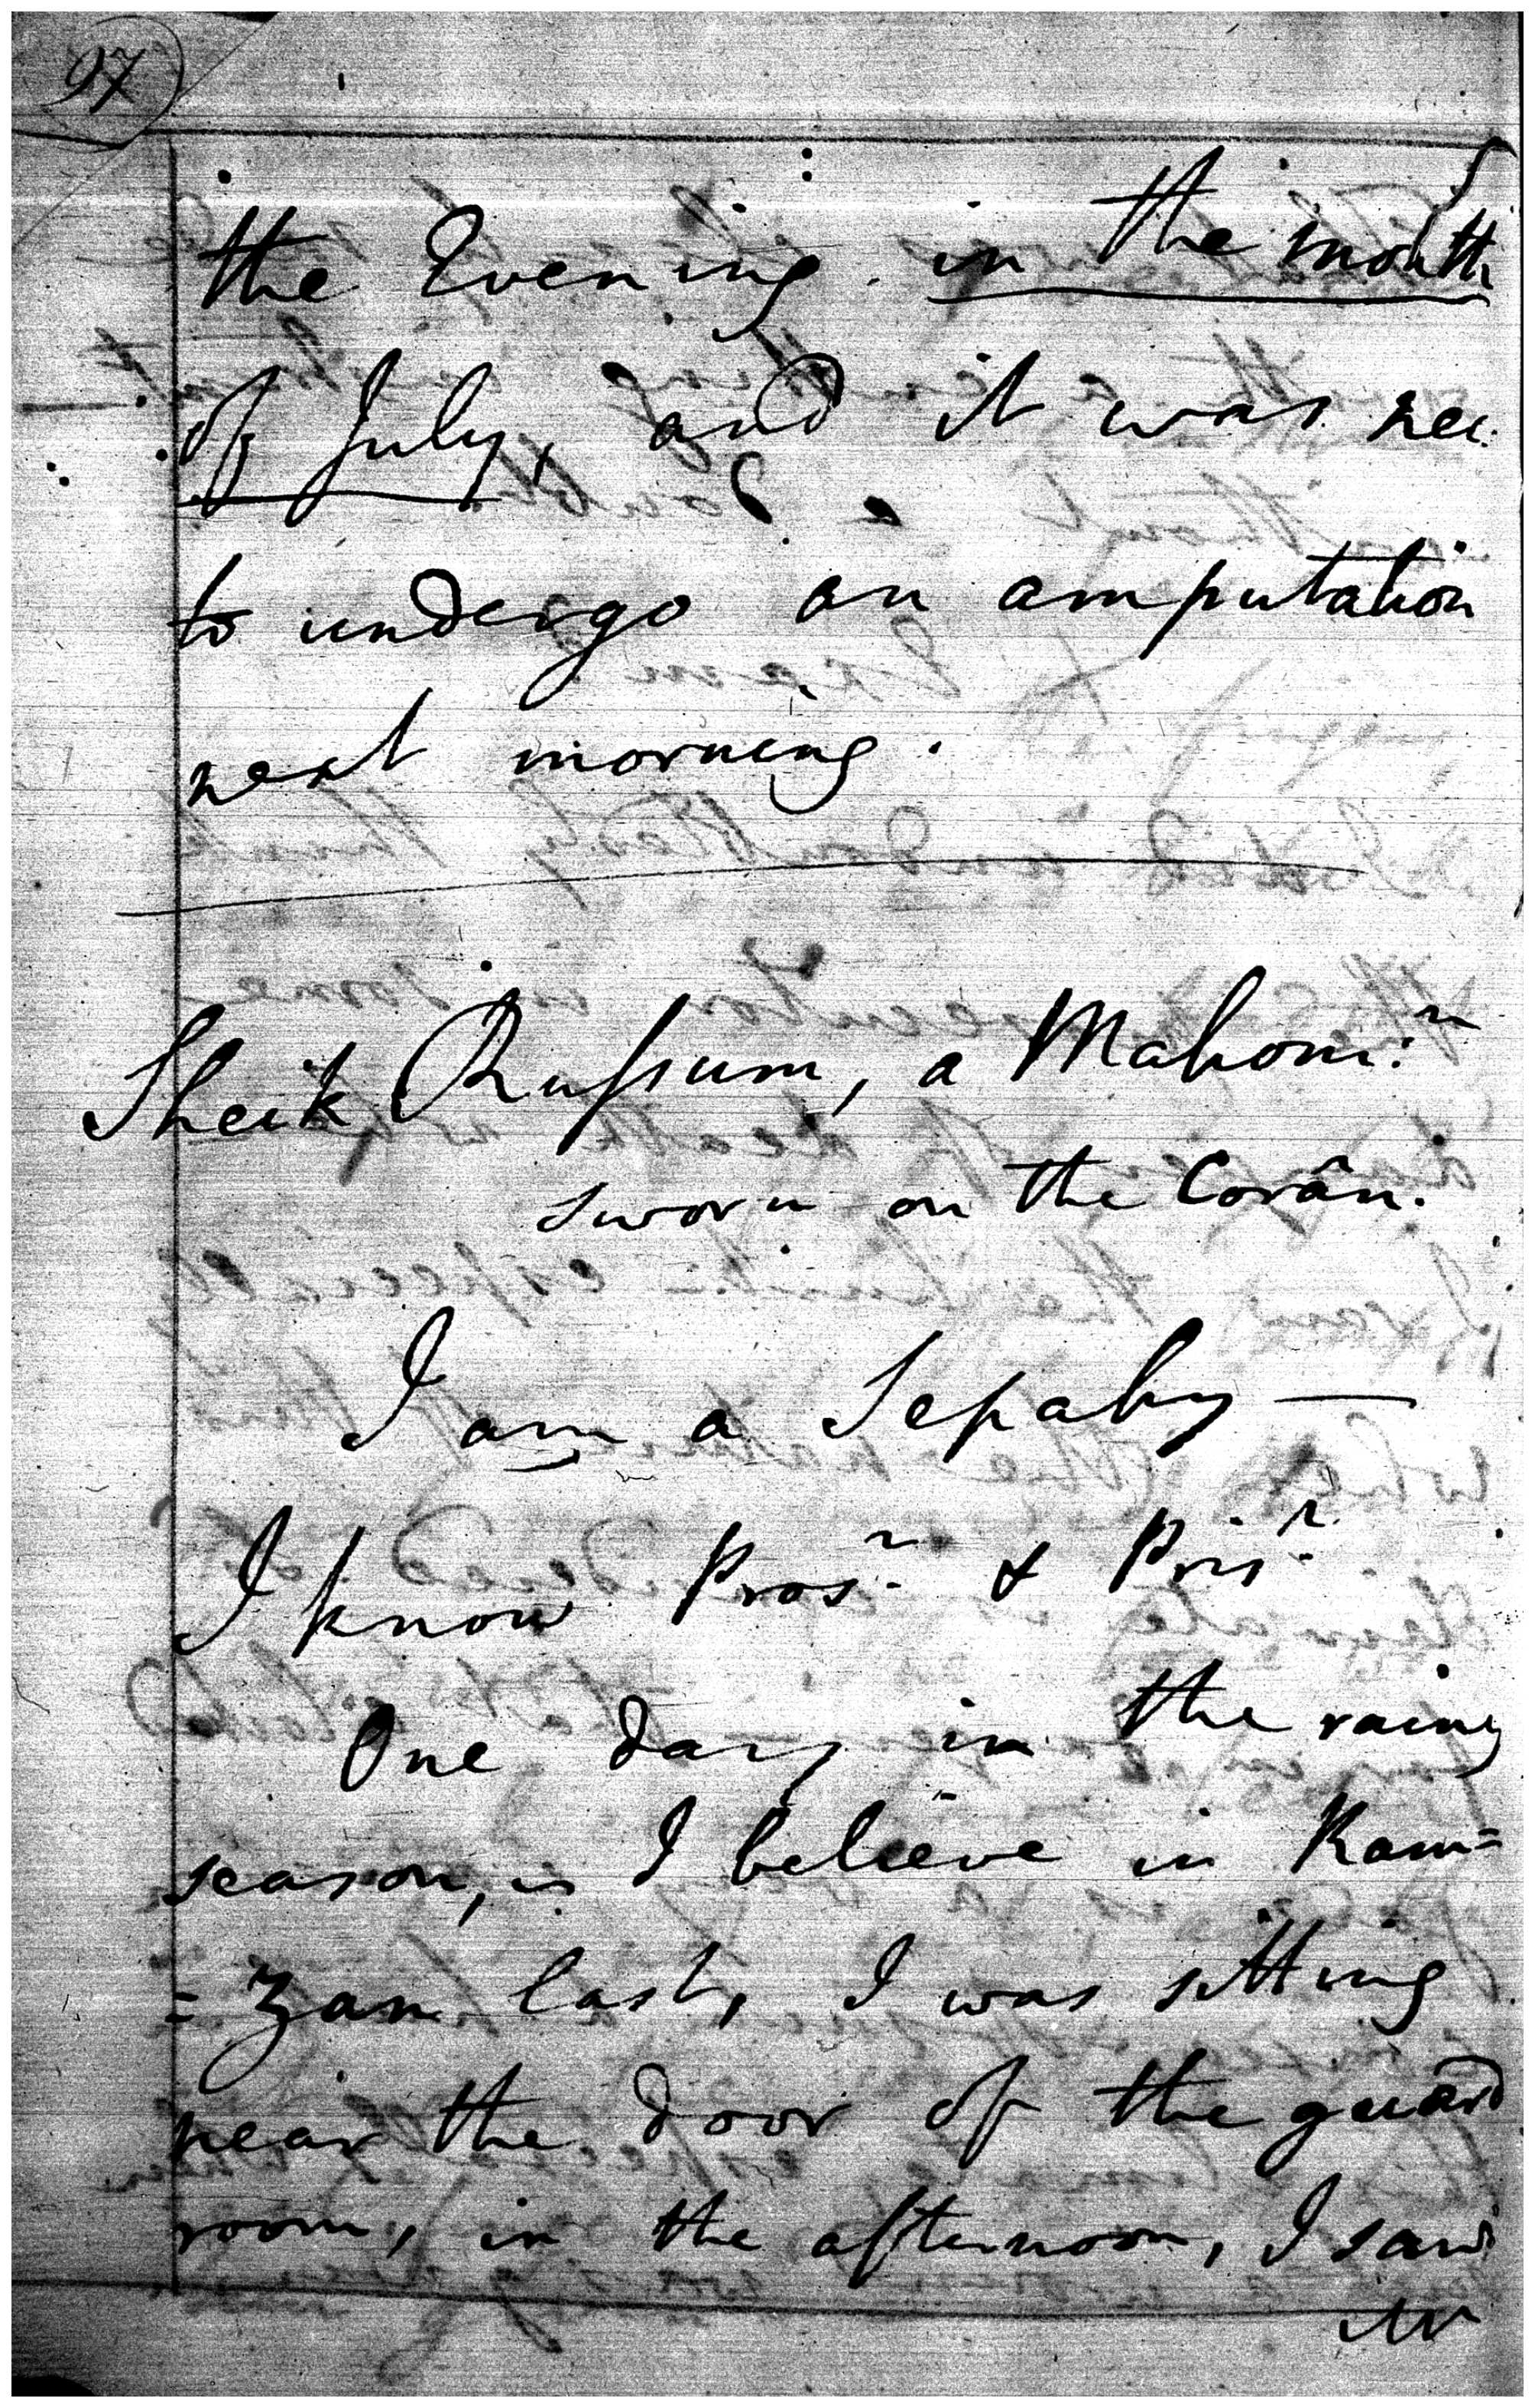 97
the Evening in the month
of July, and it was nec.
to undergo an amputation
next morning.
Sheik Russum, a Mahom:n
sworn on the Corân.
I am a Sepahy —
I know Prosr. & Prisr.
One day in the rainy
season, I believe in Ram=
=zan last, I was sitting
near the door of the guard
room, in the afternoon, I saw
Mr